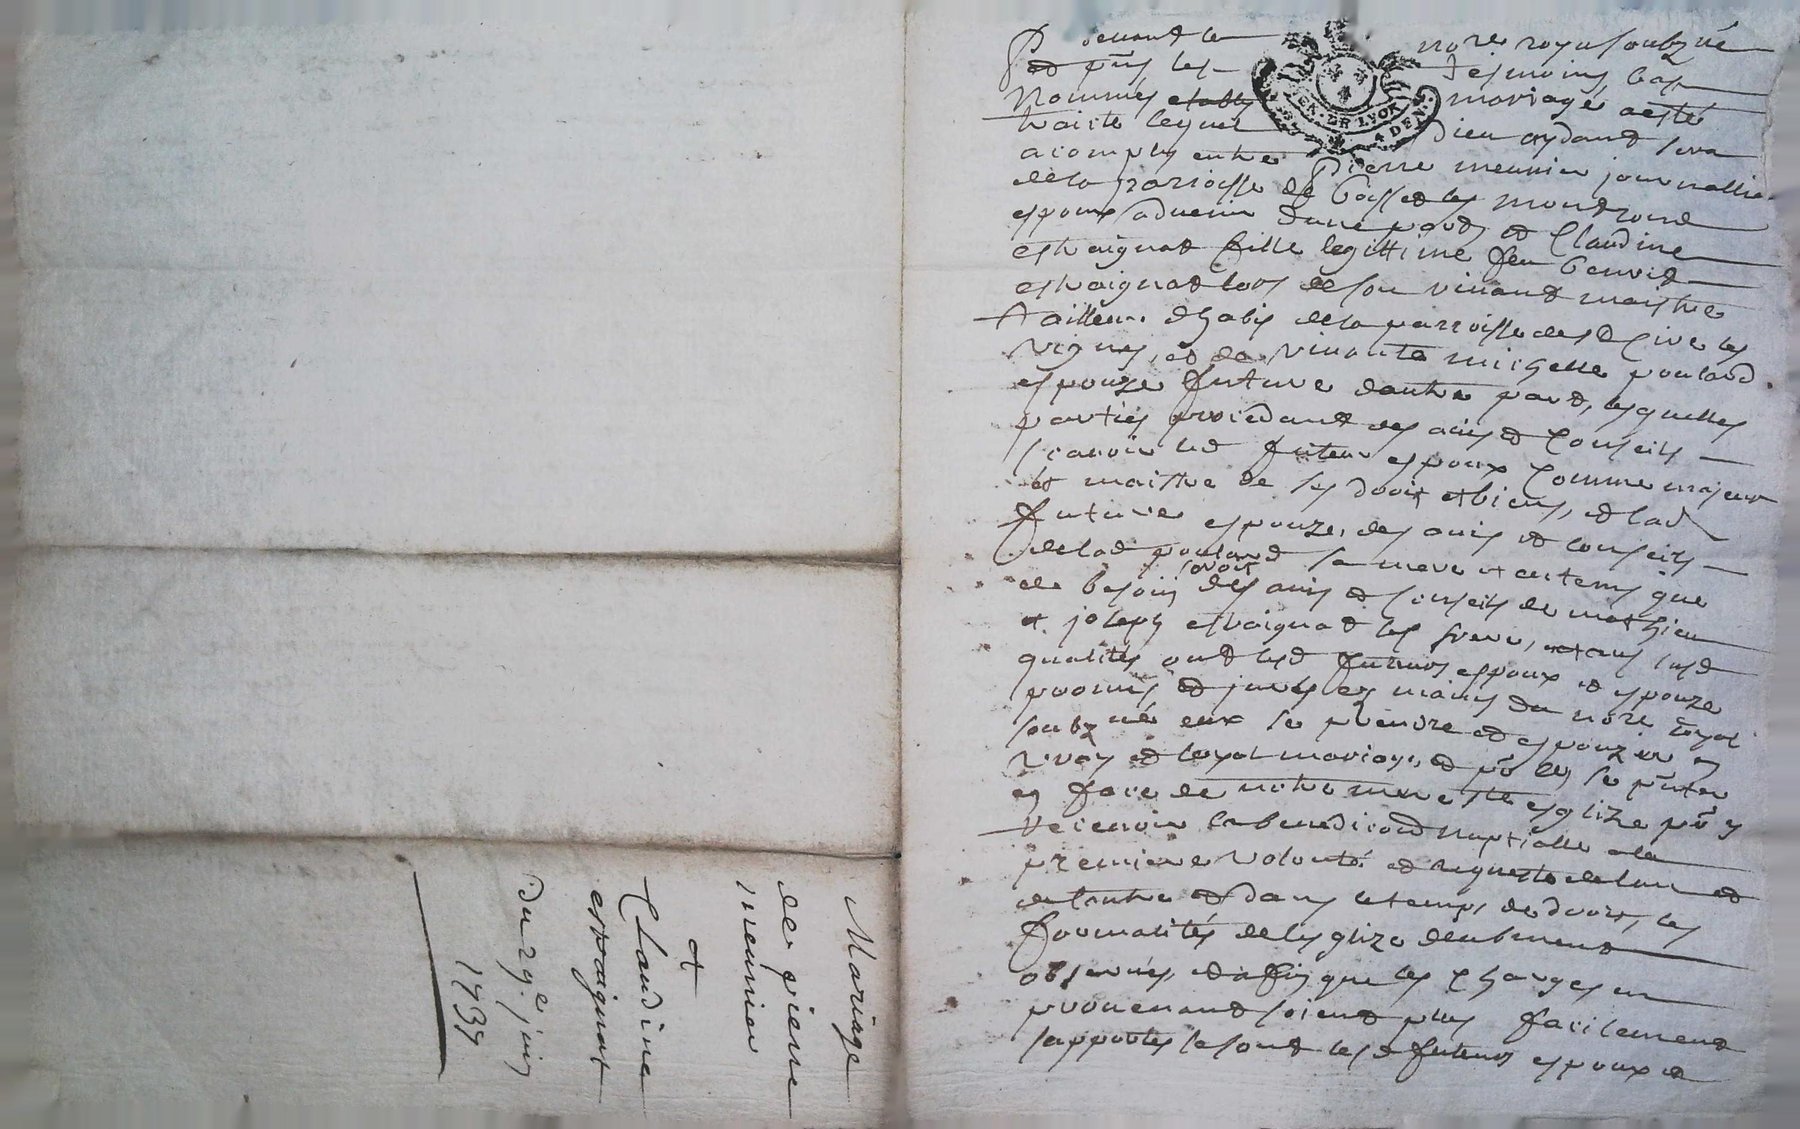 Mariage
de pierre
meunier
et
Claudine
estraignat
Du 29e juin
1739
Pardevant le nore royal soubzné
et pnt les tesmoins bas
Nommés establis mariage a esté
traicté lequel Dieu aydant sera
acomply entre Pierre meunier journallier
de la parroisse de et les montrond
espoux advenir d'une part, et Claudine
estraignat fille legittime feu benoit
estraignat lors de son vivant maistre
tailleur d'habis de la parroisse de st Cire les
vignes, et de vivante michelle poulard
espouze future d'autre part, lesquelles
parties procedant des avis et conseils
scavoir led futeur espoux comme majeur
et maistre de ses droit et biens, et lad
future espouze, des avis et conseils
de lad poulard sa mere et autems que
de besoin seroit des avis et conseils de mathieu
et joseph estraignat ses frere, susd
qualités ont lesd futeurs espoux et espouze
promis et jurés es mains du nore royal
soubzné eux se prendre et espouzer en
vray et loyal mariage, et pr ce se pnter
en face de notre mere ste esglize pr y
recevoir la benediction nuptialle a la
premiere volonté et requeste de l'un et
de l'autre et dans le temps de droit, les
formalités de l'esglize deubment
observés, et affin que les charges en
provenant soient plus facilement
supportés se sont lesd futeurs espoux et
GEN. DE LYON
4 DEN.